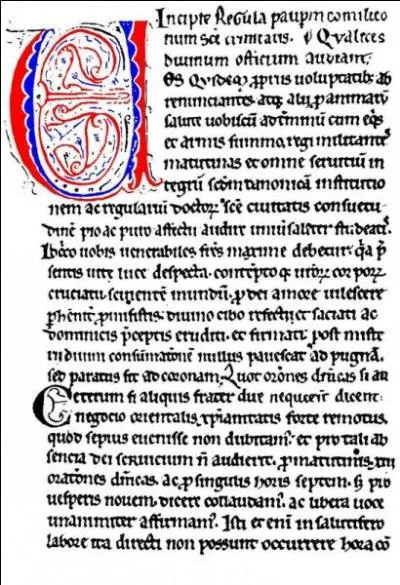 Incipit Regula paupm comilito
num sce trinitatis. Qualit
diuinum officium audiant.
Os quideq propriis voluptatib: ab
renunciantes atq alii p animarum
salute uobiscu ad tminu cum eqs
et armis summo regi militantes
matutinas et omne seruitiu in
tegru scdm canonica institutio
nem ac regulariu doctor sce ciuitatis consuetu
dine pio ac puro affectu audire uniuersaliter studeat.
Id uobis uenerabiles frs maxime debetur. qa p
sentis uite luce despecta. contempto q uror cor por
cruciatu seuiente mundu p dei amore uilescere
phenit pmisistis: diuino cibo refecti et saciati ac
dominicis pceptis eruditi et firmati. post miste
rii diuini consumatione nullus pauescat ad pugna
sed paratus sit ad corona. Quot orones dnicas si au
Ceterum si aliquis frater due nequierit dicent:
negocio orientalis xpianitatis forte remotus.
quod sepius euenisse non dubitam. et pro tali ab
sencia dei seruicium n audierit. p matutinis xiii
orationes dnicas. ac p singulis horis septem. s pro
uesperis nouem dicere collaudam. ac libera uoce
unanimiter affirmam. Isti et eni in salutifero
labore ita directi non possunt occurrere hora co